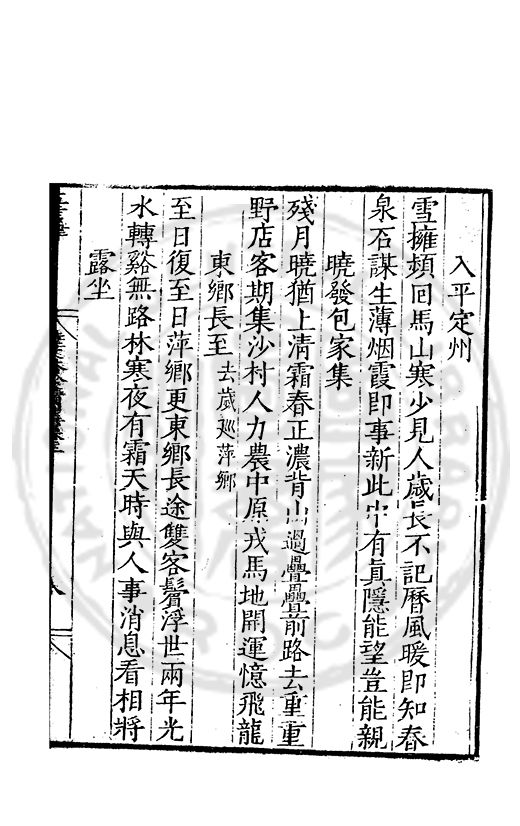 入平定州
雪擁頻回馬山寒少見人歲長不記曆風暖即知春
泉石謀生薄烟霞即事新此中有真隱能望豈能親
曉發包家集
殘月曉猶上清霜春正濃背山過疊疊前路去重重
野店客期集沙村人力農中原戎馬地開運憶飛龍
東鄉長至去歲巡萍鄉
至日復至日萍鄉更東鄉長途雙客鬢浮世兩年光
水轉谿無路林寒夜有霜天時與人事消息看相將
露坐